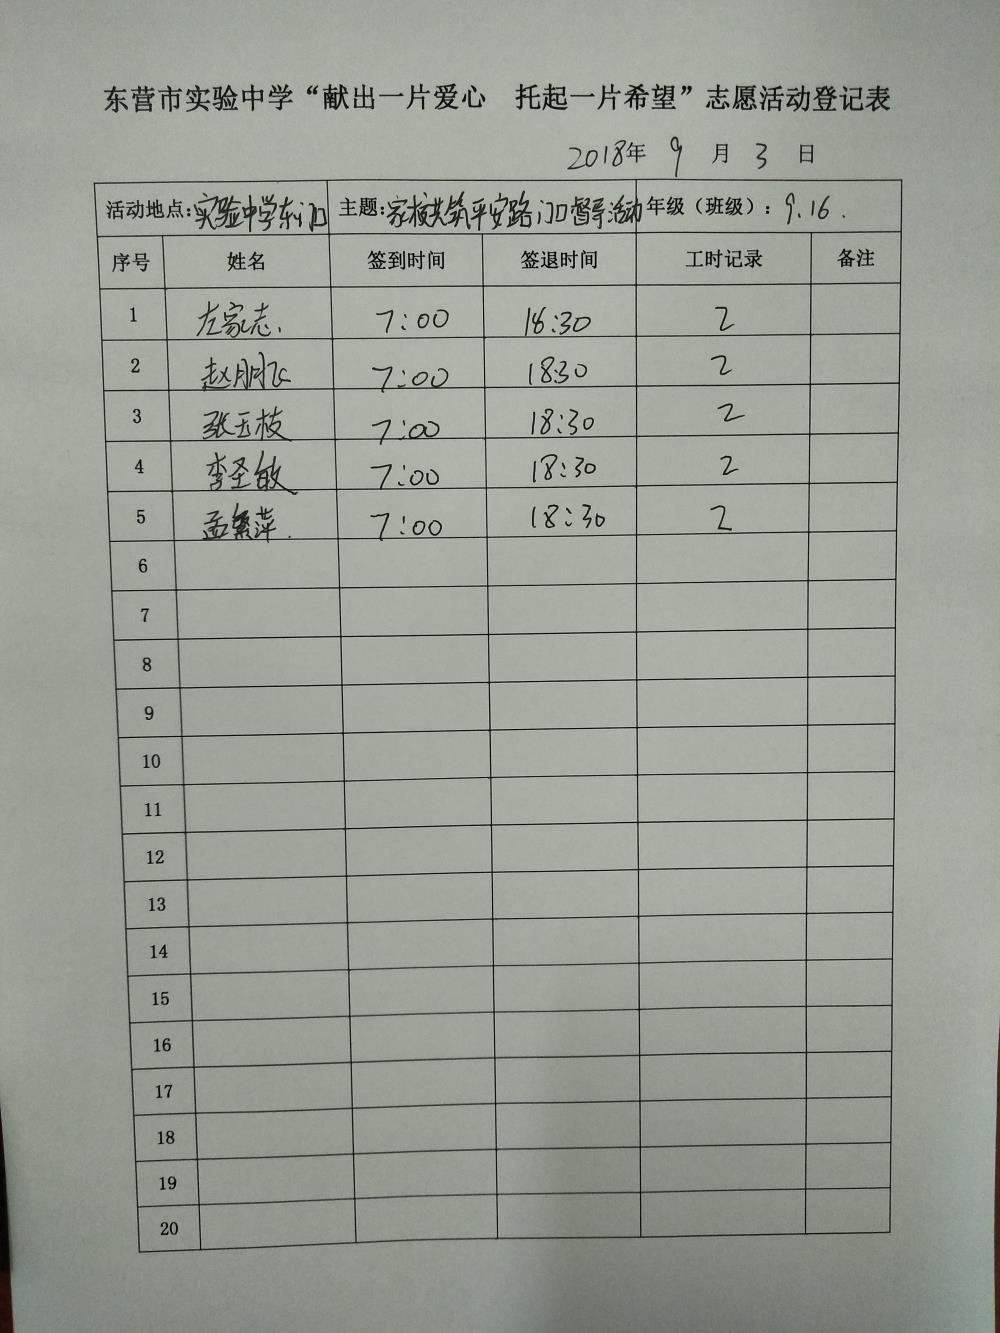 东营市实验中学“献出一片爱心 托起一片希望”志愿活动登记表
2018年 9 月 3 日
活动地点:实验中学东门口 主题:家校共筑平安路门口督导活动 年级（班级）: 9.16.
序号 姓名 签到时间 签退时间 工时记录 备注
1 左家志. 7:00 18:30 2
2 赵朋飞 7:00 1830 2
3 张玉枝 7:00 18:30 2
4 李圣敏 7:00 18:30 2
5 孟繁萍. 7:00 18:30 2
6
7
8
9
10
11
12
13
14
15
16
17
18
19
20